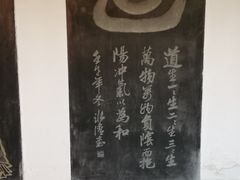 道生一生二二生三三生
萬物萬物負陰而抱
陽冲氣以為和
壬子年冬